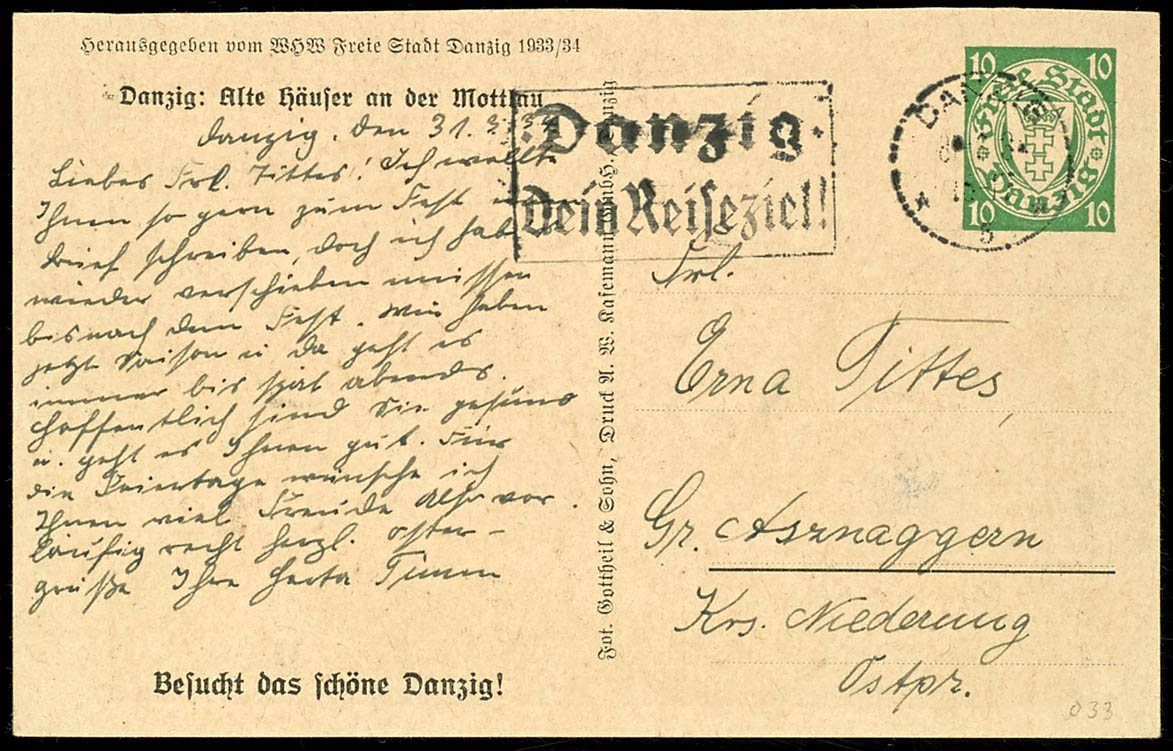 Herausgegeben vom WHW Freie Stadt Danzig 1933/34
Danzig: Alte Häuser an der Mottlau
Danzig, den 31.3.34
Liebes Frl. Tittes! Ich wollte
Ihnen so gern zum Fest
Brief schreiben, doch ich hab
wieder verschieben müssen
bis nach dem Fest. Wir haben
jetzt Saison u da geht es
immer bis spät abends.
Hoffentlich sind Sie gesund
u. geht es Ihnen gut. Für
die Feiertage wünsche ich
Ihnen viel Freude also vor
läufig recht herzl. Oster-
grüße Ihre Herta Timm
Besucht das schöne Danzig!
Fot. Gottheil & Sohn, Druck A. W. Kafemann GmbH, Danzig
Danzig.
dein Reiseziel!
DANZIG
5
10 10
Freie Stadt
Danzig
10 10
Frl.
Erna Tittes,
Gr. Asznaggern
Krs. Niederung
Ostpr.
033